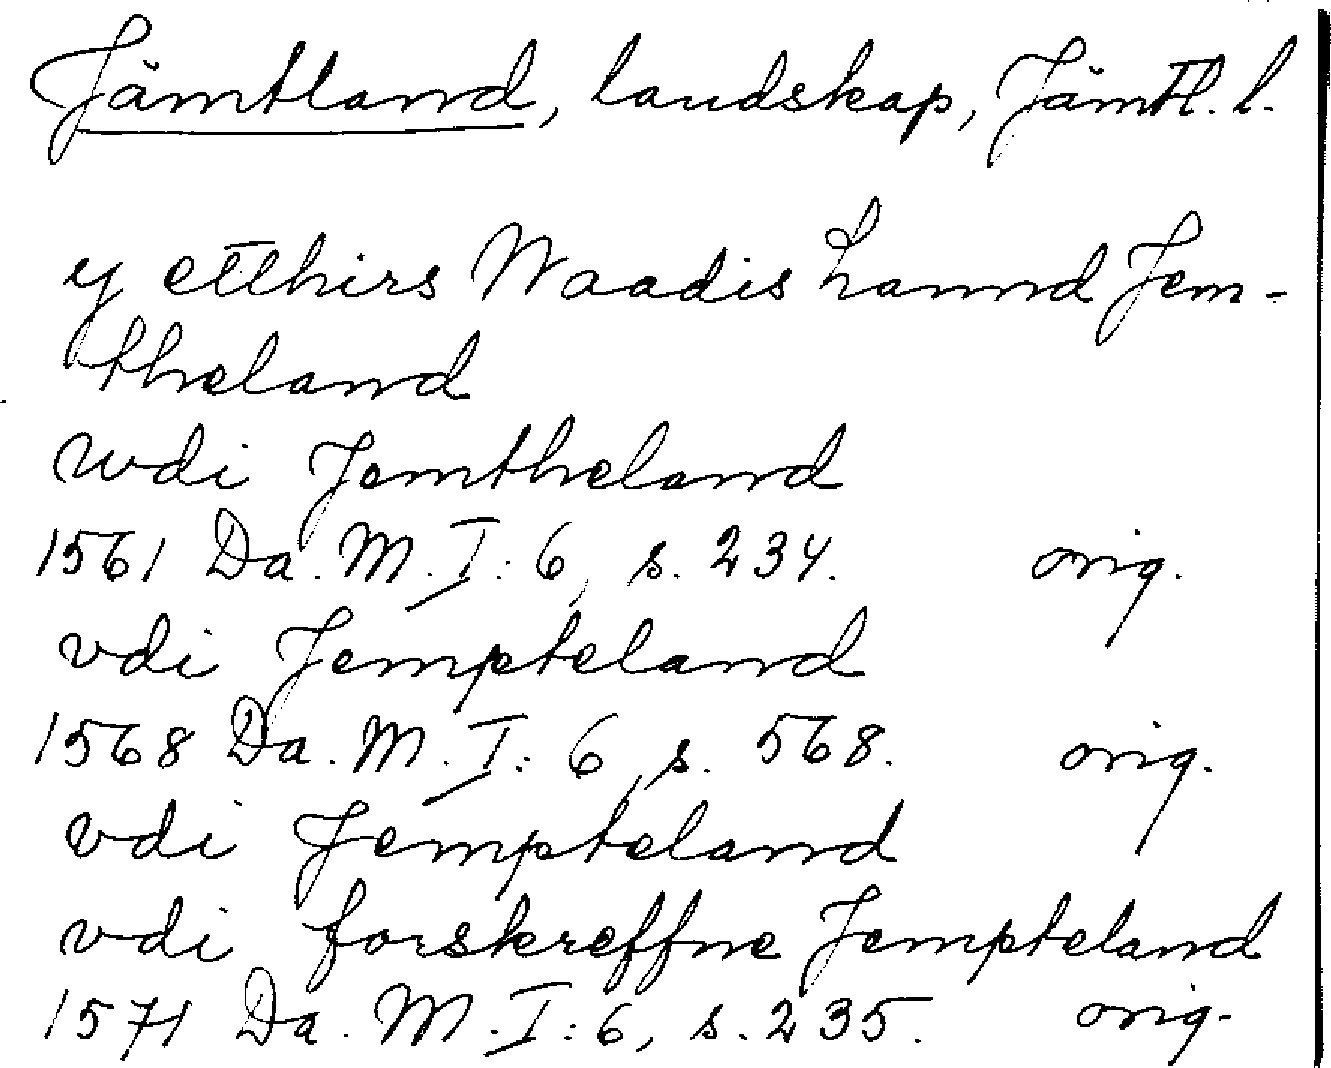 Jämtland, landskap, Jämtl. l.
y etthirs Waadis Lannd Jem-
theland
wdi Jemtheland
1561 Da. M. I: 6, s. 234. orig.
vdi Jempteland
1568 Da. M. I: 6, s. 568. orig.
vdi Jempteland
vdi forskreffne Jempteland
1571 Da. M. I: 6, s. 235. orig.